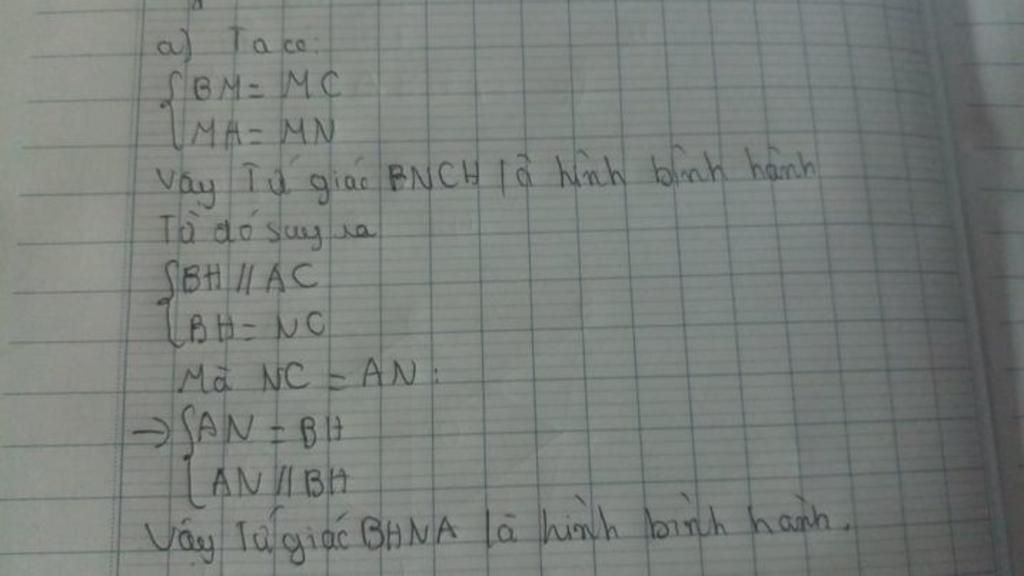 a) Ta có:
{BM = MC
{MH = MN
Vậy Tứ giác BNCH là hình bình hành
Từ đó suy ra
{BH // AC
{BH = NC
Mà NC = AN:
→ {AN = BH
{AN // BH
Vậy Tứ giác BHNA là hình bình hành.